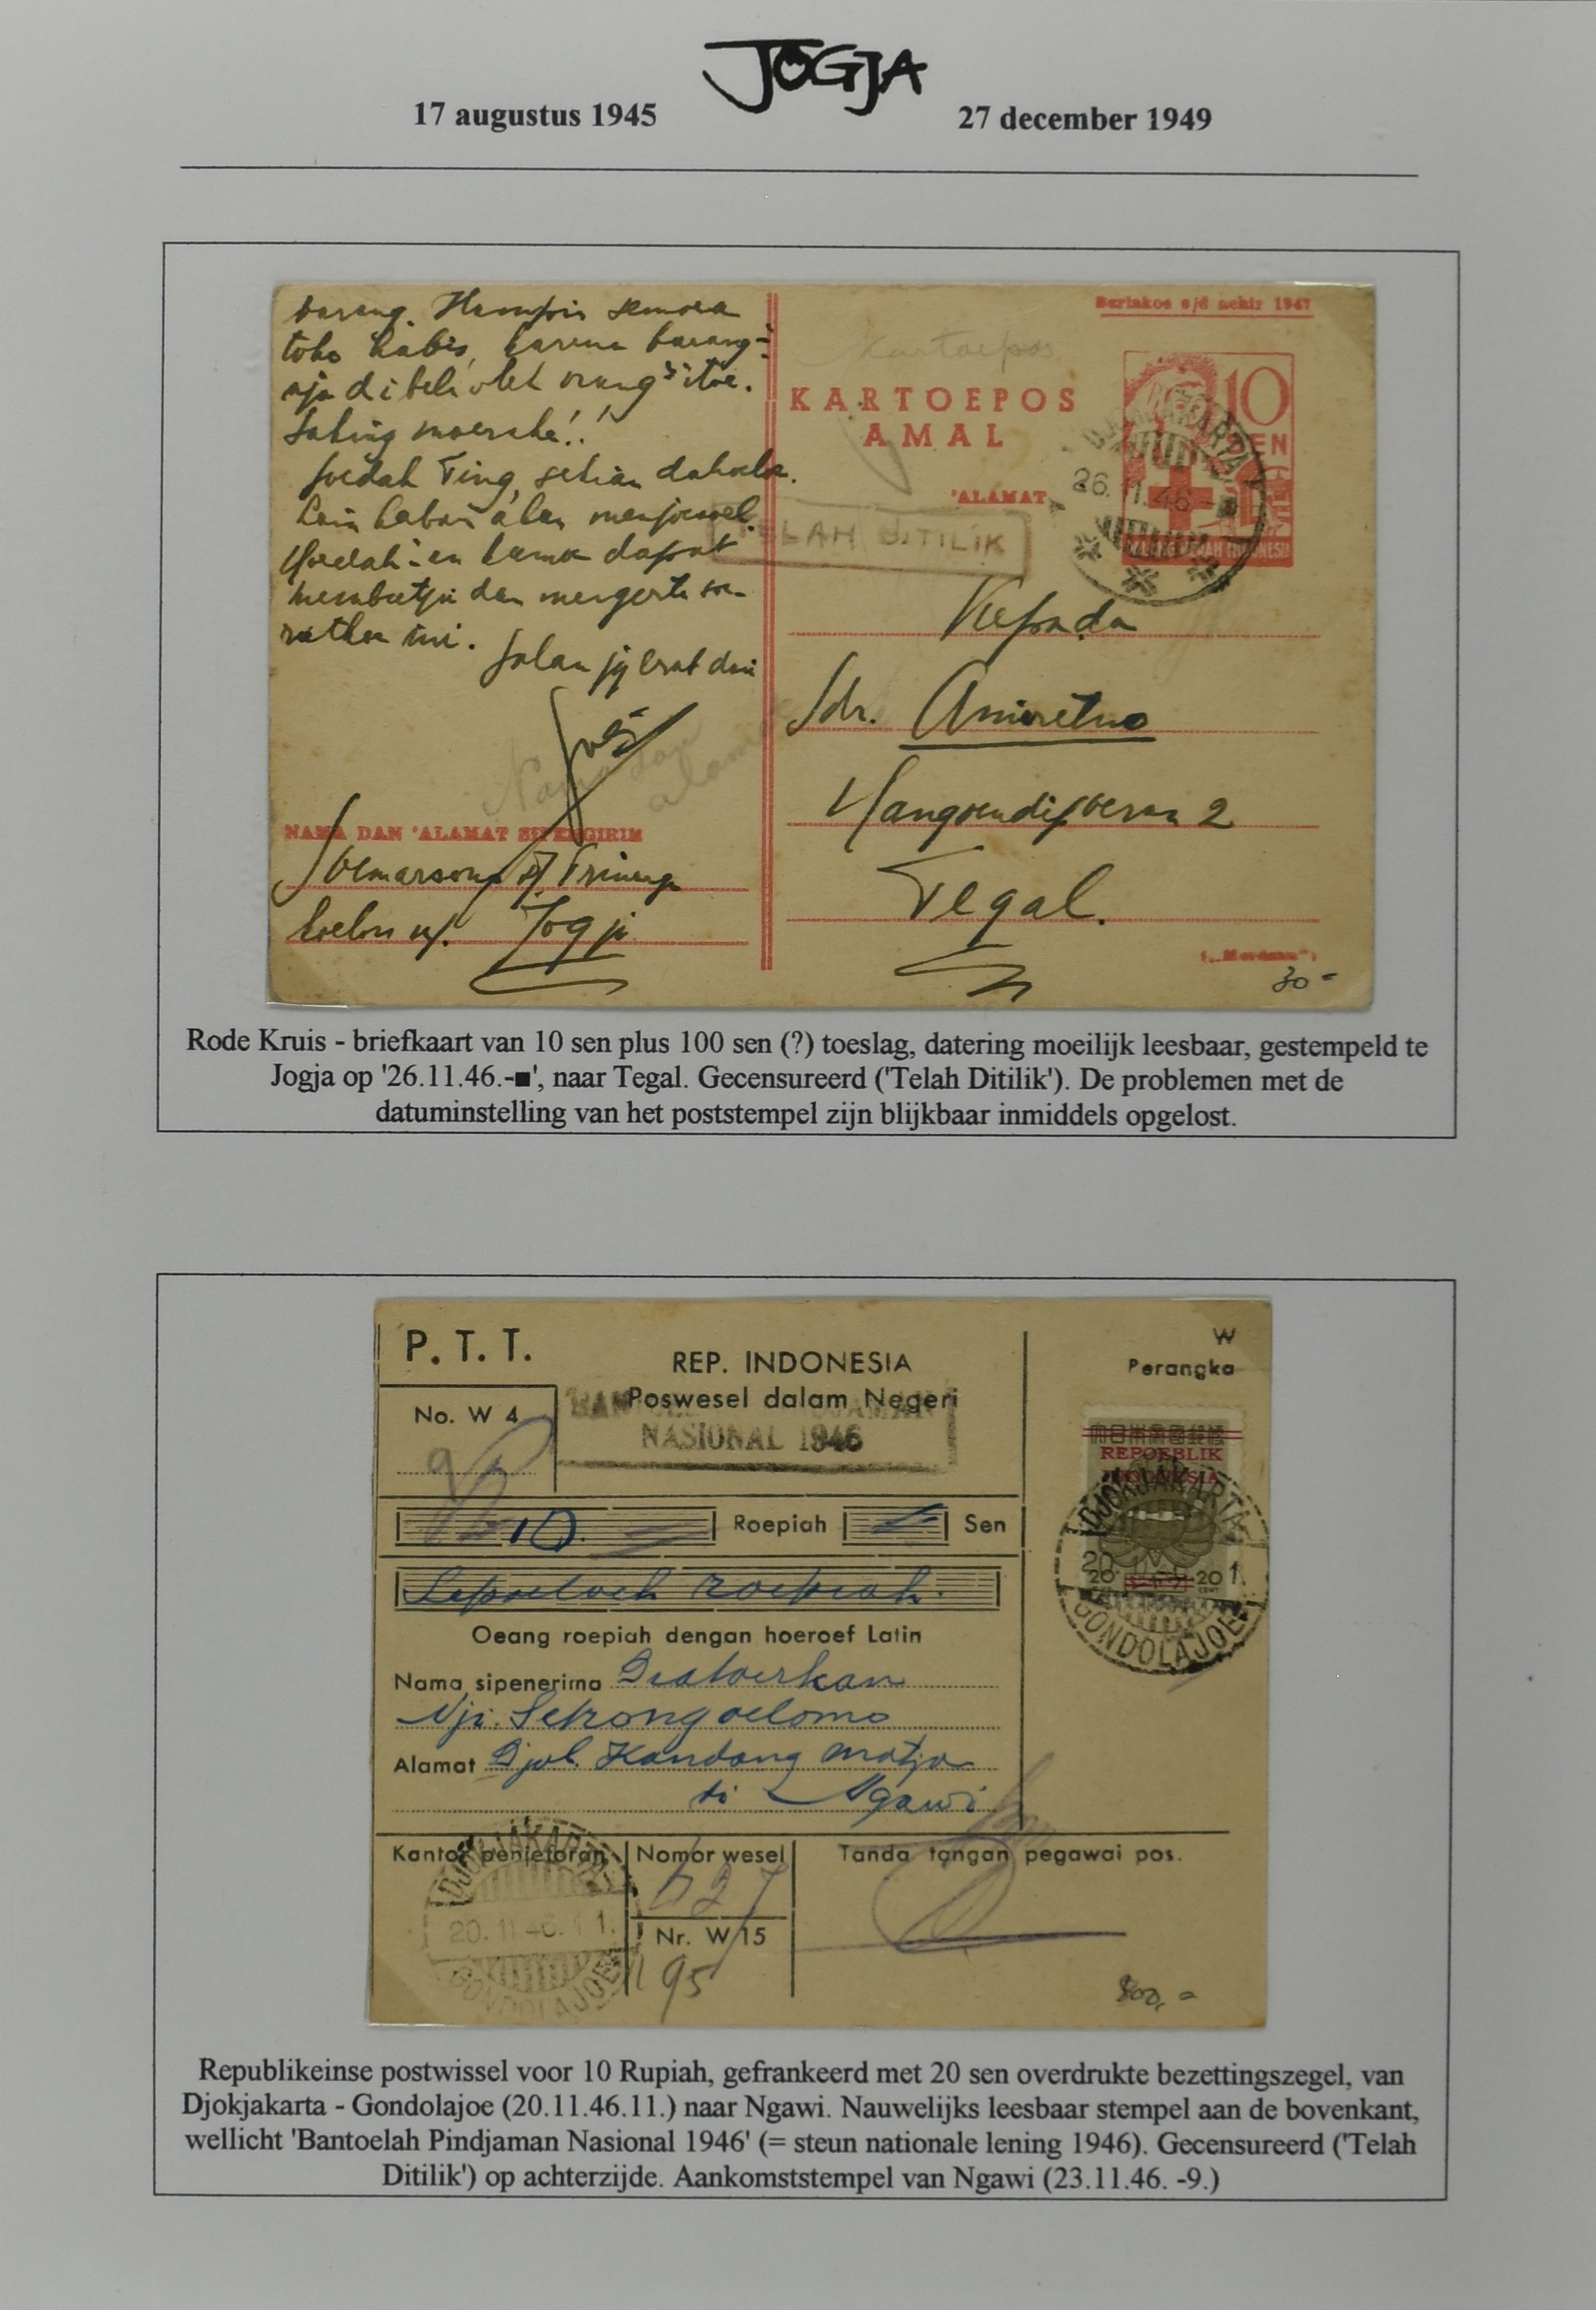 JOGJA
17 augustus 1945
27 december 1949
barang. Hampir semoea
toko habis, karena barang-
nja dibeli oleh orang² itoe.
Saking moerahé!!
Soedah Ting, sekian dahoeloe.
Lain kabar akan menjoesoel.
Moedah-an kamoe dapat
membatja dan mengerti soe-
ratkoe ini.
Salam jg erat dari
Nama dan alamat
NAMA DAN 'ALAMAT SIPENGIRIM
Soemarsono
koelon Jogja
Berlakoe s/d achir 1947
Kartoepos
KARTOEPOS
AMAL
10
SEN
PALANG MERAH INDONESIA
DJOKJAKARTA
26.11.46.-
'ALAMAT
TELAH DITILIK
Kepada
Sdr. Amiretno
Tegal.
("Merdeka")
30-
Rode Kruis - briefkaart van 10 sen plus 100 sen (?) toeslag, datering moeilijk leesbaar, gestempeld te
Jogja op '26.11.46.-■', naar Tegal. Gecensureerd ('Telah Ditilik'). De problemen met de
datuminstelling van het poststempel zijn blijkbaar inmiddels opgelost.
P. T. T.
REP. INDONESIA
Poswesel dalam Negeri
No. W 4
NASIONAL 1946
W
Perangka
REPOEBLIK
INDONESIA
20 20
DJOKJAKARTA
GONDOLAJOE
10. Roepiah Sen
Sepoeloeh roepiah.
Oeang roepiah dengan hoeroef Latin
Nama sipenerima Diatoerkan
Nji. Setrongoelomo
Alamat Djol. Kandang matjan
di Ngawi
Kantor penjetoran
DJOKJAKARTA
20.11.46.11.
GONDOLAJOE
Nomor wesel
627
Nr. W 15
95
Tanda tangan pegawai pos.
800,-
Republikeinse postwissel voor 10 Rupiah, gefrankeerd met 20 sen overdrukte bezettingszegel, van
Djokjakarta - Gondolajoe (20.11.46.11.) naar Ngawi. Nauwelijks leesbaar stempel aan de bovenkant,
wellicht 'Bantoelah Pindjaman Nasional 1946' (= steun nationale lening 1946). Gecensureerd ('Telah
Ditilik') op achterzijde. Aankomststempel van Ngawi (23.11.46. -9.)